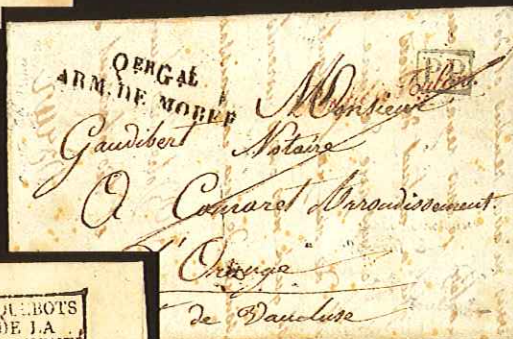 QERGAL
ARM. DE MOREE
P.P.
Monsieur
Gaudibert Notaire
A Camaret Arrondissement
d'Orange
de Vaucluse
QUEBOTS
DE LA